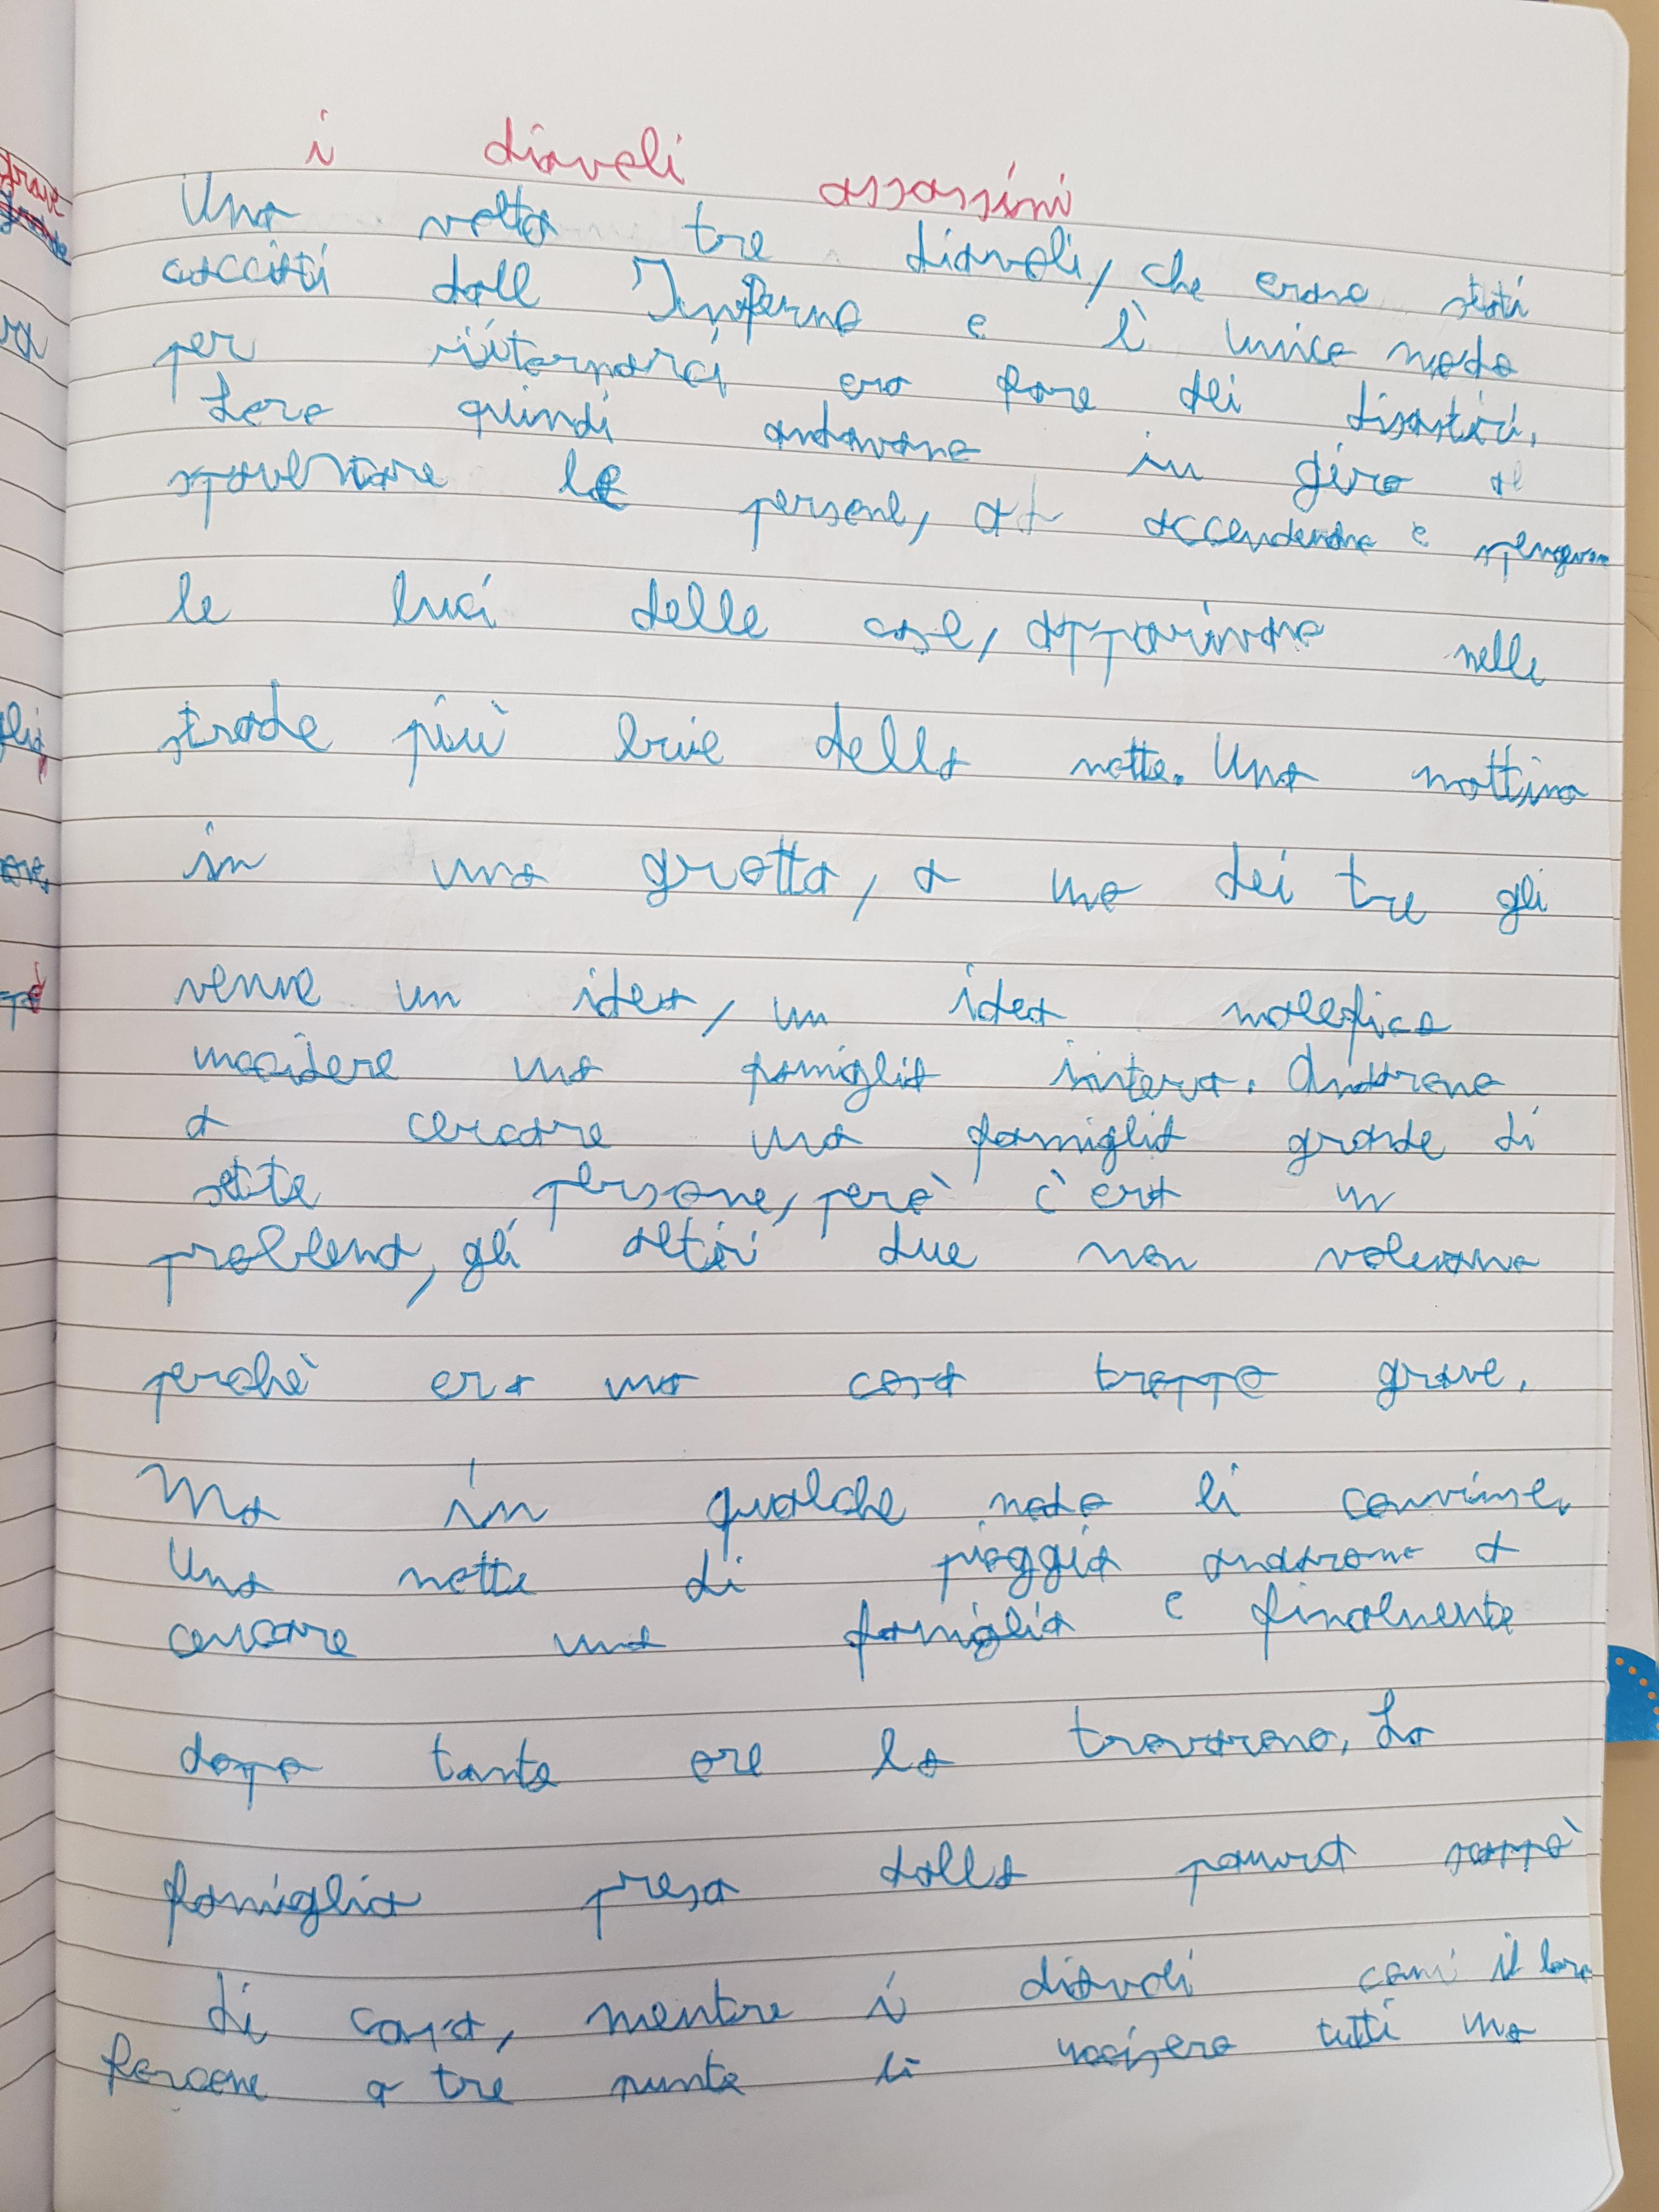 i diavoli assassini
Una volta tre diavoli, che erano stati
cacciati dall Inferno e l' unico modo
per ritornarci era fare dei disastri.
Loro quindi andavano in giro a
spaventare le persone, ad accendendo e spengevano
le luci delle case, apparivano nelle
strade più buie della notte. Una mattina
in una grotta, a uno dei tre gli
venne un idea, un idea malefica
uccidere una famiglia intera. Andarono
a cercare una famiglia grande di
sette persone, però c'era un
problema, gli altri due non volevano
perchè era una cosa troppo grave.
Ma in qualche modo li convinse.
Una notte di pioggia andarono a
cercare una famiglia e finalmente
dopo tante ore la trovarono. La
famiglia presa dalla paura scappò
di casa, mentre i diavoli con il loro
forcone a tre punte li uccisero tutti ma